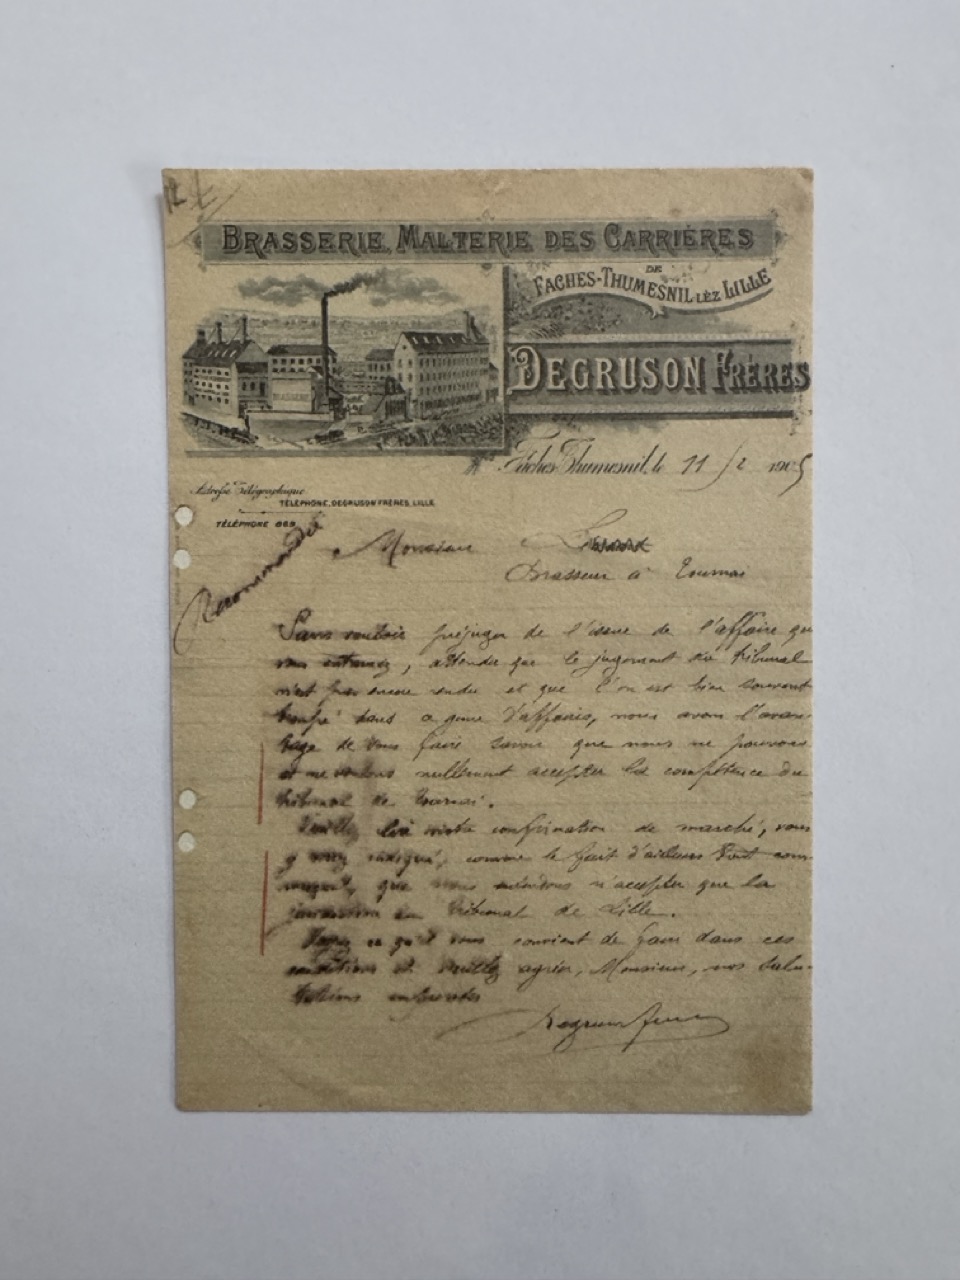 BRASSERIE, MALTERIE DES CARRIÈRES
DE
FACHES-THUMESNIL LEZ LILLE
DEGRUSON FRÈRES
Faches-Thumesnil, le 11/2 1905
Adresse Télégraphique
TÉLÉPHONE, DEGRUSON FRÈRES, LILLE
TÉLÉPHONE 669
Recommandée
Monsieur
Brasseur à Tournai
Sans vouloir préjuger de l'issue de l'affaire que
vous entamez, attendu que le jugement du tribunal
n'est pas encore rendu et que l'on est bien souvent
trompé dans ce genre d'affaires, nous avons l'avan-
tage de vous faire savoir que nous ne pouvons
et ne voulons nullement accepter la compétence du
tribunal de Tournai.
Veuillez lire notre confirmation de marché, vous
y verrez indiqué, comme le fait d'ailleurs tout com-
que nous n'accepter que la
juridiction du Tribunal de Lille.
Voyez ce qu'il vous convient de faire dans ces
conditions et veuillez agréer, Monsieur, nos salu-
tations empressées
Degruson frères